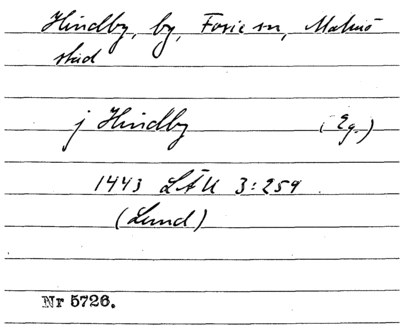 Hindby, by, Fosie sn, Malmö
stad
j Hindby (Eg.)
1443 LÄU 3:259
(Lund)
Nr 5726.